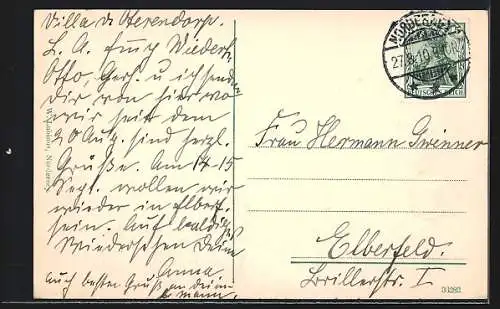 Villa de Oterendorp.
L. A. Emmy
Otto, Gerh. u ich senden
Dir von hier wo
wir seit dem
20 Aug. sind herzl.
Grüße. Am 14-15
Sept. wollen wir
wieder in Elberf.
sein. Auf baldiges
Wiedersehen Deine
Anna
Auch besten Gruß an Deinen
Mann.
NORDERNEY
27.8.10
DEUTSCHES REICH
Frau Hermann Gwinner
Elberfeld.
Brillerstr. I
31282